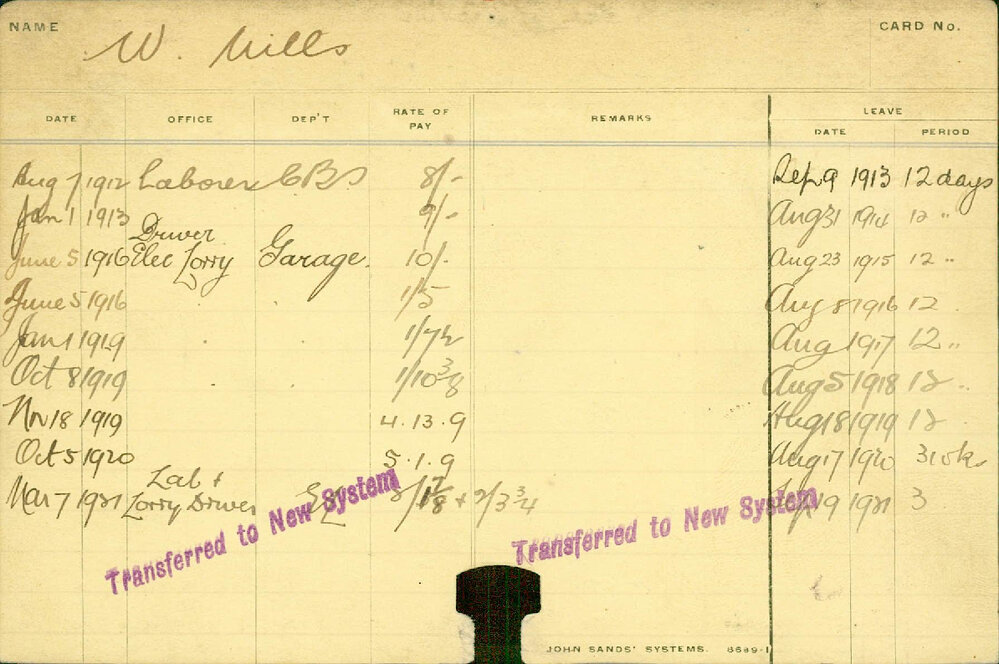 NAME W. Mills CARD No.
DATE OFFICE DEP'T RATE OF PAY REMARKS LEAVE
DATE PERIOD
Aug 7 1912 Laborer CBS 8/- Sep 9 1913 12 days
Jan 1 1913 9/- Aug 31 1914 12 "
Driver
June 5 1916 Elec Lorry Garage. 10/- Aug 23 1915 12 "
June 5 1916 1/5 Aug 8 1916 12
Jan 1 1919 1/7½ Aug 1917 12 "
Oct 8 1919 1/10⅜ Aug 5 1918 12 "
Nov 18 1919 4.13.9 Aug 18 1919 12
Oct 5 1920 5.1.9 Aug 17 1920 3 wks
Lab +
Mar 7 1921 Lorry Driver EL 2/1⅞ + 2/3¾ 9 1921 3
Transferred to New System
Transferred to New System
JOHN SANDS' SYSTEMS. 8689-1